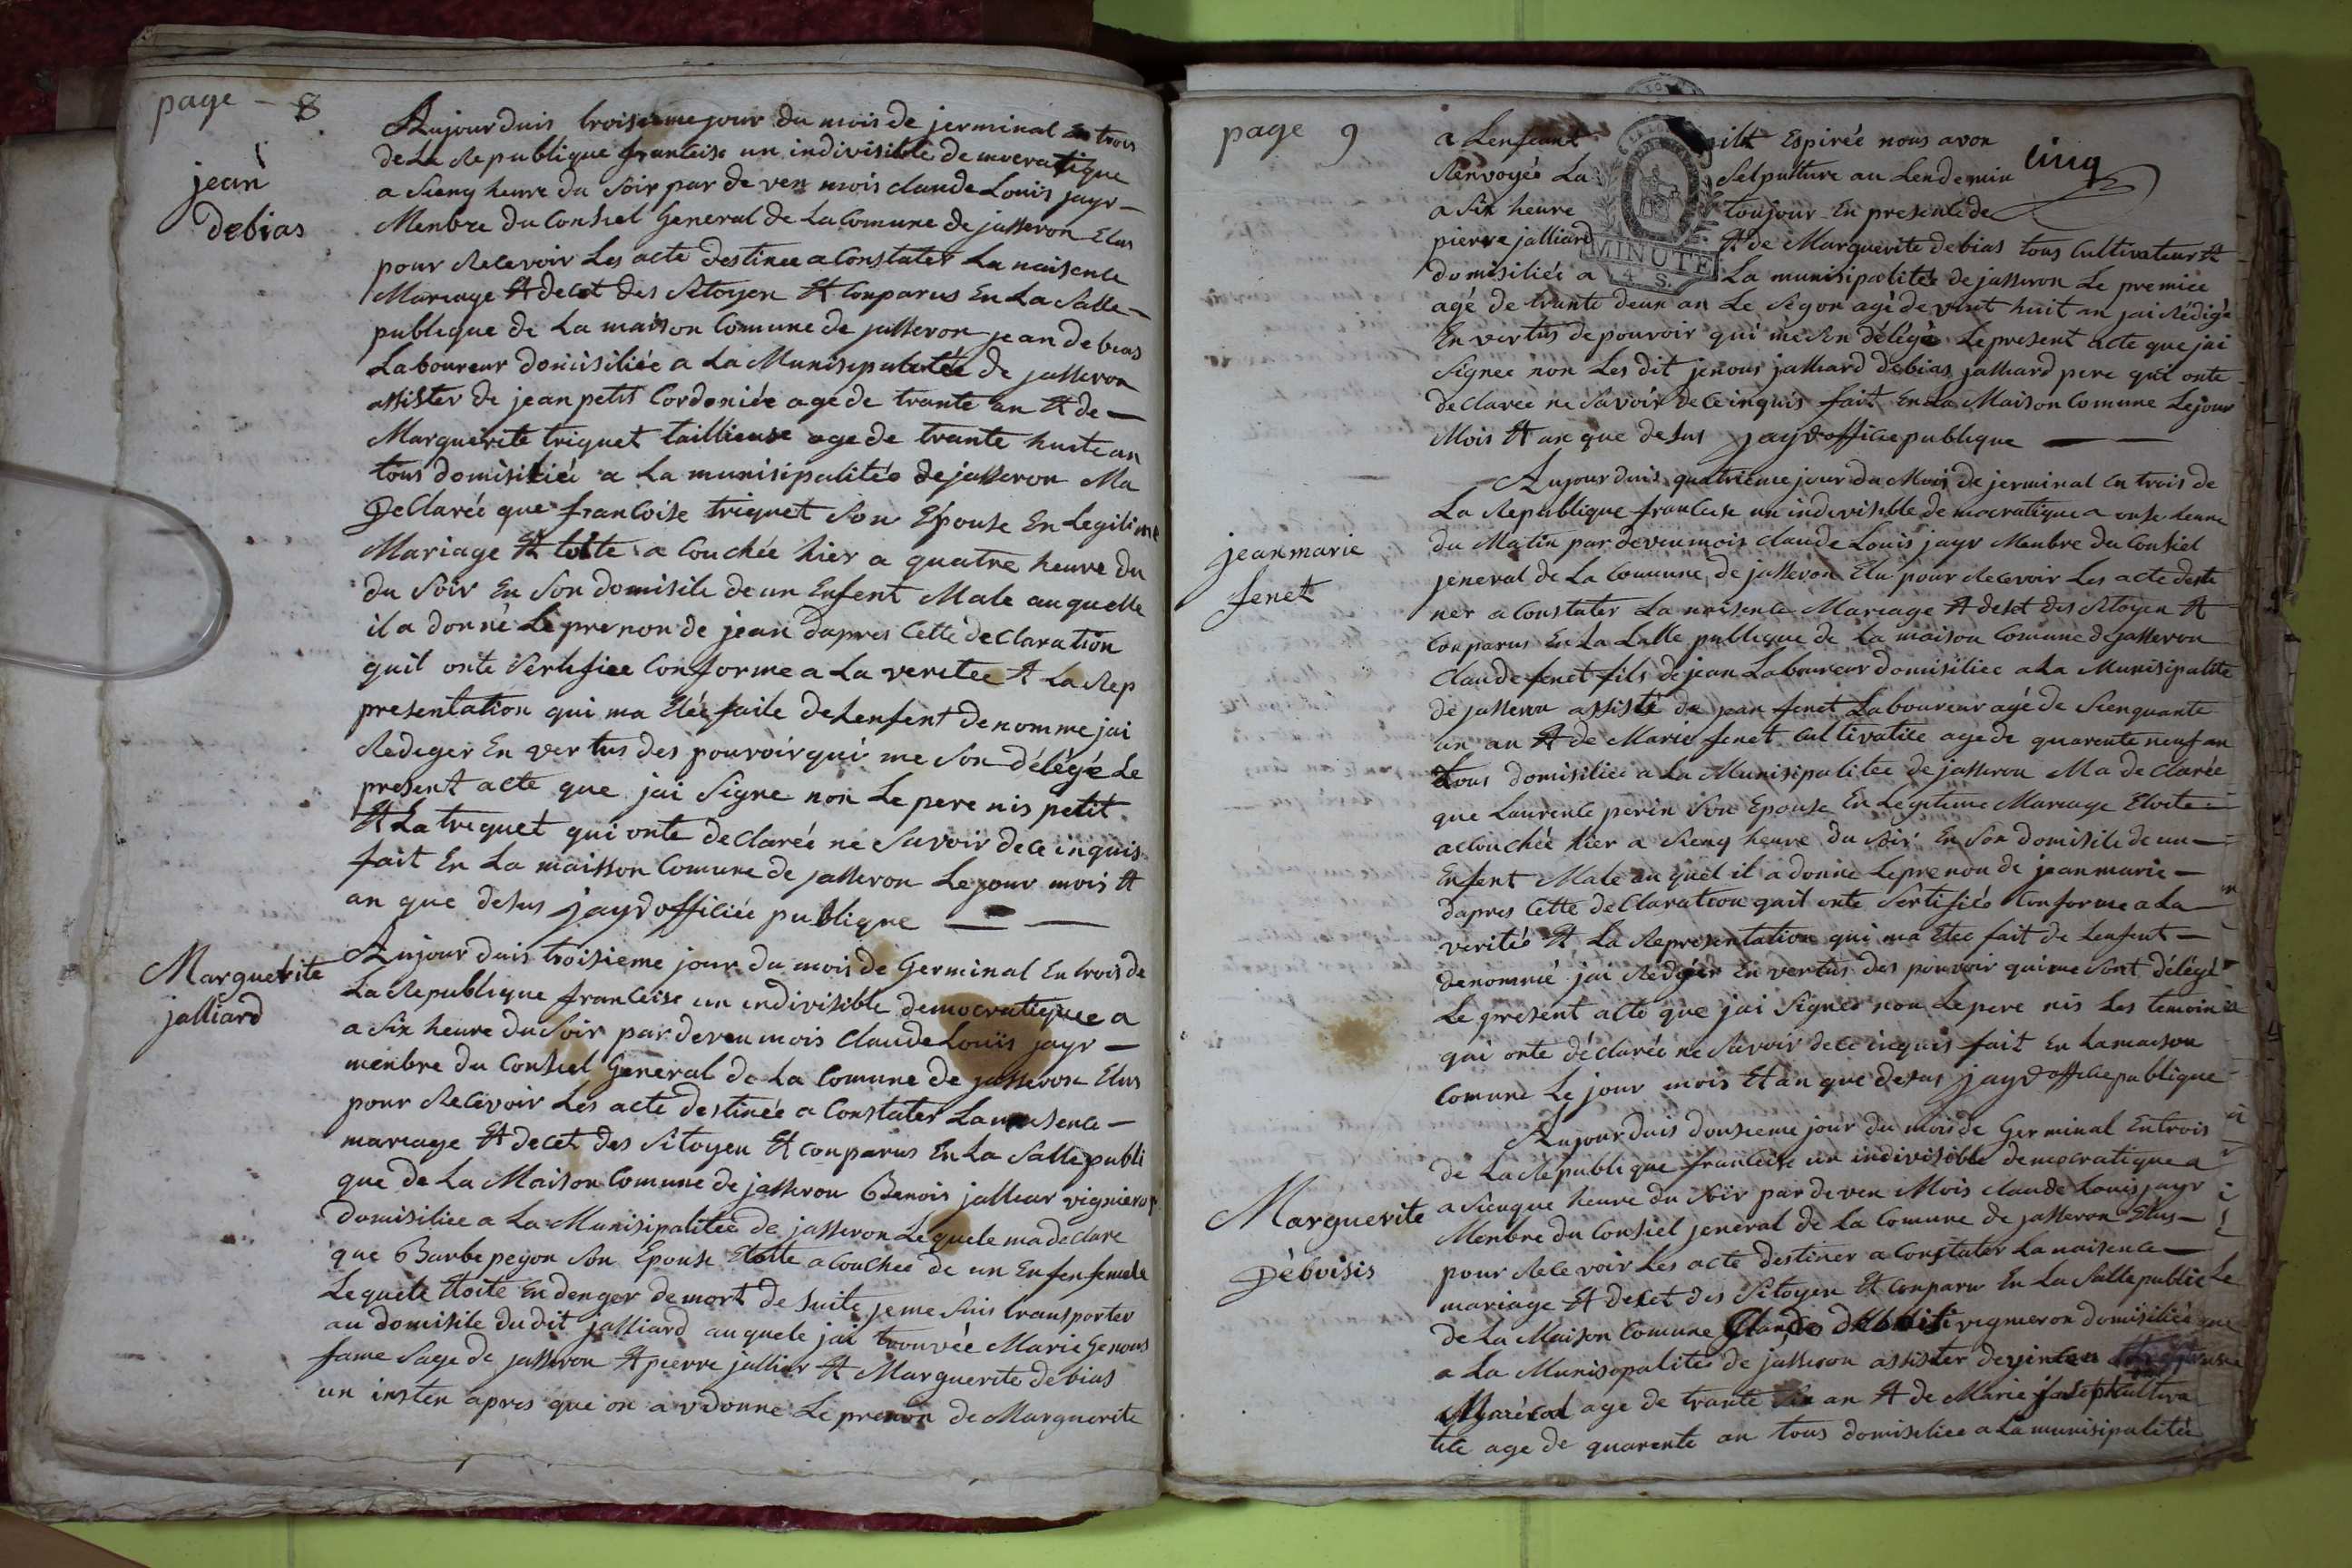 page - 8
jean
debias
Aujourduis troisieme jour du mois de jerminal en trois
de La Republique franceise un indivisible democratique
a Sieng heure du Soir par de ven mois claude Louis jayr
Menbre du Consiel General de La Comune de jasseron Elus
pour Recevoir Les acte destinee a Constater La naisence
Mariage Et decet des Sitoyen Et Conparus En La Salle
publique de La maison Comune de jasseron jean debias
Laboureur domisiliée a La Munisipalitée de jasseron
assister de jean petit Cordoniée age de trante an Et de
Marguerite triquet taillieuse age de trante huite an
tous domisiliée a La munisipalitée de jasseron Ma
Declarée que francoise triquet Son Epouse En Legitime
Mariage Et toite a Couchée hier a quatre heure du
du Soir En Son domisile de un Enfent Male auquelle
il a donné Le prenon de jean dapres Cette declaration
quil onte Sertifiee Conforme a La veritee Et La Rep
presentation qui ma Etée faite deLenfent denomme jai
Rediger En vertus des pouvoir qui me Son délégé Le
present acte que jai Signe non Le pere nis petit
Et La triquet qui onte declareé ne Savoir dece inquis
fait En La maisson Comune de jasseron Le jour mois Et
an que desus jayr officiée publique
Marguerite
jalliard
Aujourduis troisieme jour du mois de Germinal En trois de
La Republique franceise un indivisible democratique a
a Six heure du Soir par deven mois claude Louis jayr
menbre du Consiel General de La Comune de jasseron Elus
pour Recevoir Les acte destinée a Constater La naisence
mariage Et decet des Sitoyen Et conparus En La Salle publi
que de La Maison Comune de jasseron Benois jalliar vignieron
domisiliee a La Munisipalitée de jasseron Lequele ma declare
que Barbe peyon Son Epouse Etoite a Couchée de un Enfen femele
Lequele Etoite En denger de mort de Suite je me Suis transporter
au domisile dudit jalliard auquele jai trouvée Marie Genous
fame Sage de jasseron Et pierre jalliar Et Marguerite debias
un insten apres que on a vdonne Le prenon de Marguerite
page 9
a Lenfeant ilt Espirée nous avon
Renvoyée La Selpulture au Lendemin
a Six heure toujour En presente de
pierre jalliard Et de Marguerite debias tous Cultivateur Et
domisiliée a La munisipalitée de jasseron Le premiee
agé de trante deux an Le Segon agé de vint huit an jai Rédigé
En vertus de pouvoir qui me Son délégé Le present acte que jai
Signee non Les dit jenous jalliard debias jalliard pere qui onte
declarée ne Savoir dece inquis fait En La Maison Comune Lejour
Mois Et an que desus jayr officie publique
cinq
MINUTE
4. S.
jeanmarie
fenet
Aujourduis quatrieme jour du Mois de jerminal En trois de
La Republique franceise un indevisible democratique a onse heure
du Matin par deven mois claude Louis jayr Menbre du Consiel
jeneral de La Comune de jasseron Elu pour Recevoir Les acte desti
ner a Constater La naisence Mariage Et deset des Sitoyen Et
Conparus En La Salle publique de La maison Comune de jasseron
Claude fenet fils de jean Laboureur domisiliee a La Munisipalite
de jasseron assisté de jean fenet Laboureur agé de Sienquante
un an Et de Marie fenet Cultivatice age de quarente neuf an
tous domisiliée a La Munisipalitee de jasseron Ma declarée
que Laurence perin Son Epouse En Legiteme Mariage Etoite
acouchée hier a Sieng heure du Soir En Son domisile de un
Enfent Male auquel il a donné Le prenon de jeanmarie
dapres Cette declaration quil onte Sertifiée Conforme a La
veritée Et La Representation qui ma Etee fait de Lenfent
denommé jai Redigér En vertus des pouvoir qui me Sont délégé
Le present acte que jai Signée non Le pere nis Les temoin
qui onte declarée ne Savoir dece inquis fait En La maison
Comune Le jour mois Et an que desus jayr officie publique
Marguerite
Déboisis
Aujourduis dousieme jour du mois de Germinal En trois
de La Republique franceise un indivisible democratique a
a Sienque heure du Soir par deven Mois claude Louis jayr
Menbre du Consiel jeneral de La Comune de jasseron Elus
pour Recevoir Les acte destiner a Constater La naisence
mariage Et deset des Sitoyen Et Conparu En La Salle publicke
de La Maison Comune Claude vigneron domisiliée
a La Munisipalitée de jasseron assister de
Marécal age de trante Six an Et de Marie joseph Cultiva
tice age de quarente an tous domisiliee a La munisipalitée